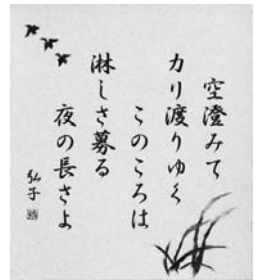 空澄みて
カリ渡りゆく
このころは
淋しさ募る
夜の長さよ
弘子